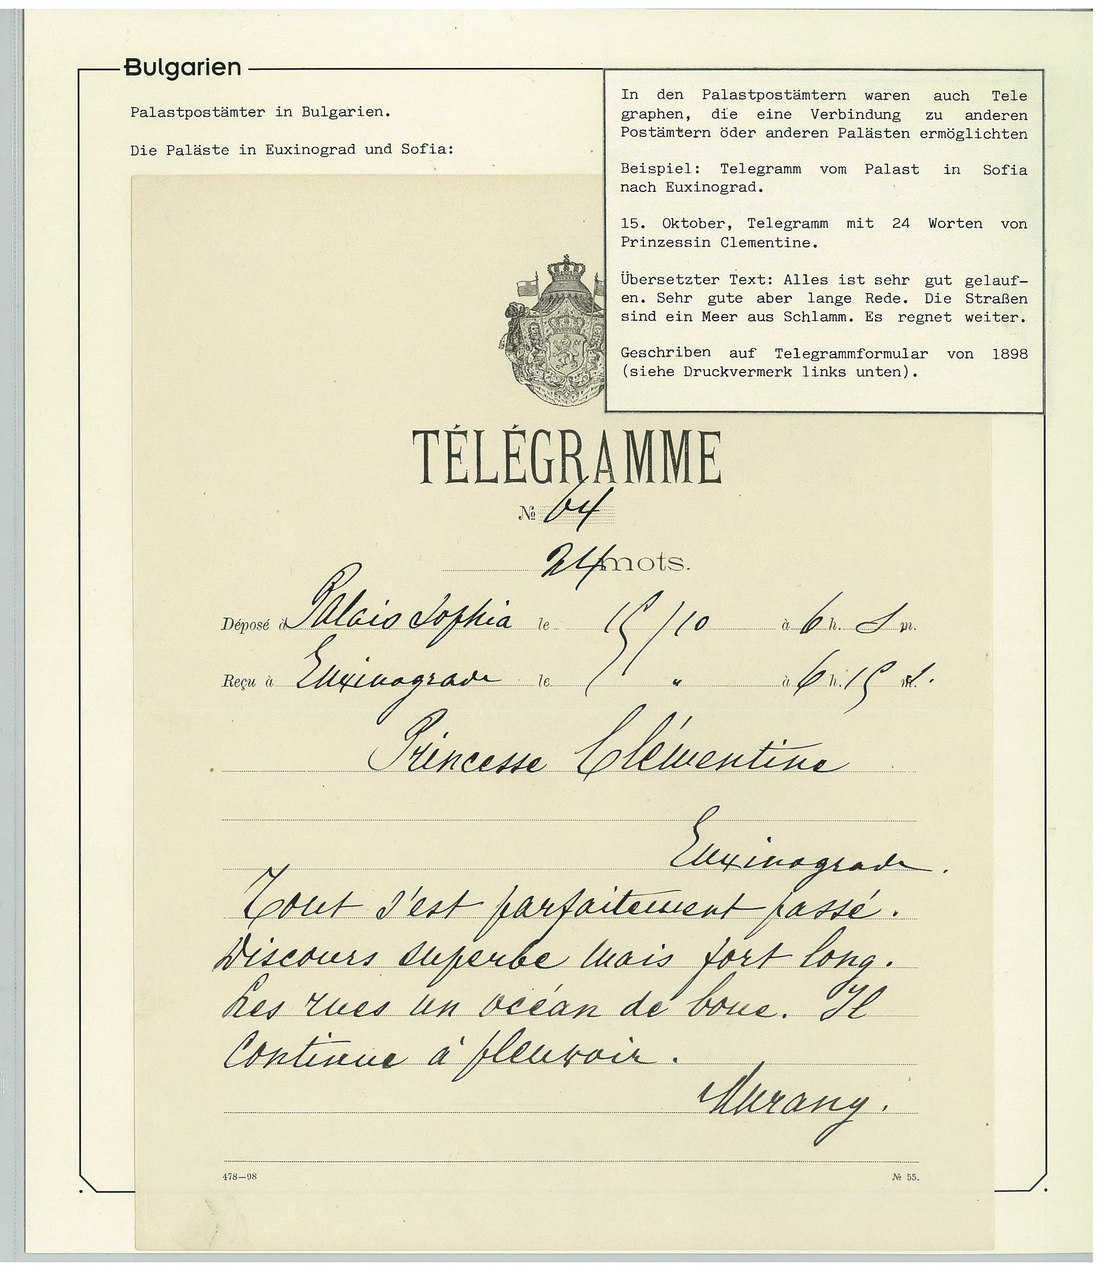 Bulgarien
Palastpostämter in Bulgarien.
Die Paläste in Euxinograd und Sofia:
In den Palastpostämtern waren auch Tele
graphen, die eine Verbindung zu anderen
Postämtern öder anderen Palästen ermöglichten
Beispiel: Telegramm vom Palast in Sofia
nach Euxinograd.
15. Oktober, Telegramm mit 24 Worten von
Prinzessin Clementine.
Übersetzter Text: Alles ist sehr gut gelauf-
en. Sehr gute aber lange Rede. Die Straßen
sind ein Meer aus Schlamm. Es regnet weiter.
Geschriben auf Telegrammformular von 1898
(siehe Druckvermerk links unten).
TÉLÉGRAMME
№ 64
24 mots.
Déposé à Palais Sophia le 15/10 à 6 h. S m.
Reçu à Euxinograde le " à 6 h. 15 m. S.
Princesse Clémentine
Euxinograde.
Tout s'est parfaitement passé.
Discours superbe mais fort long.
Les rues un océan de boue. Il
continue à pleuvoir.
Murany.
478—98
№ 55.